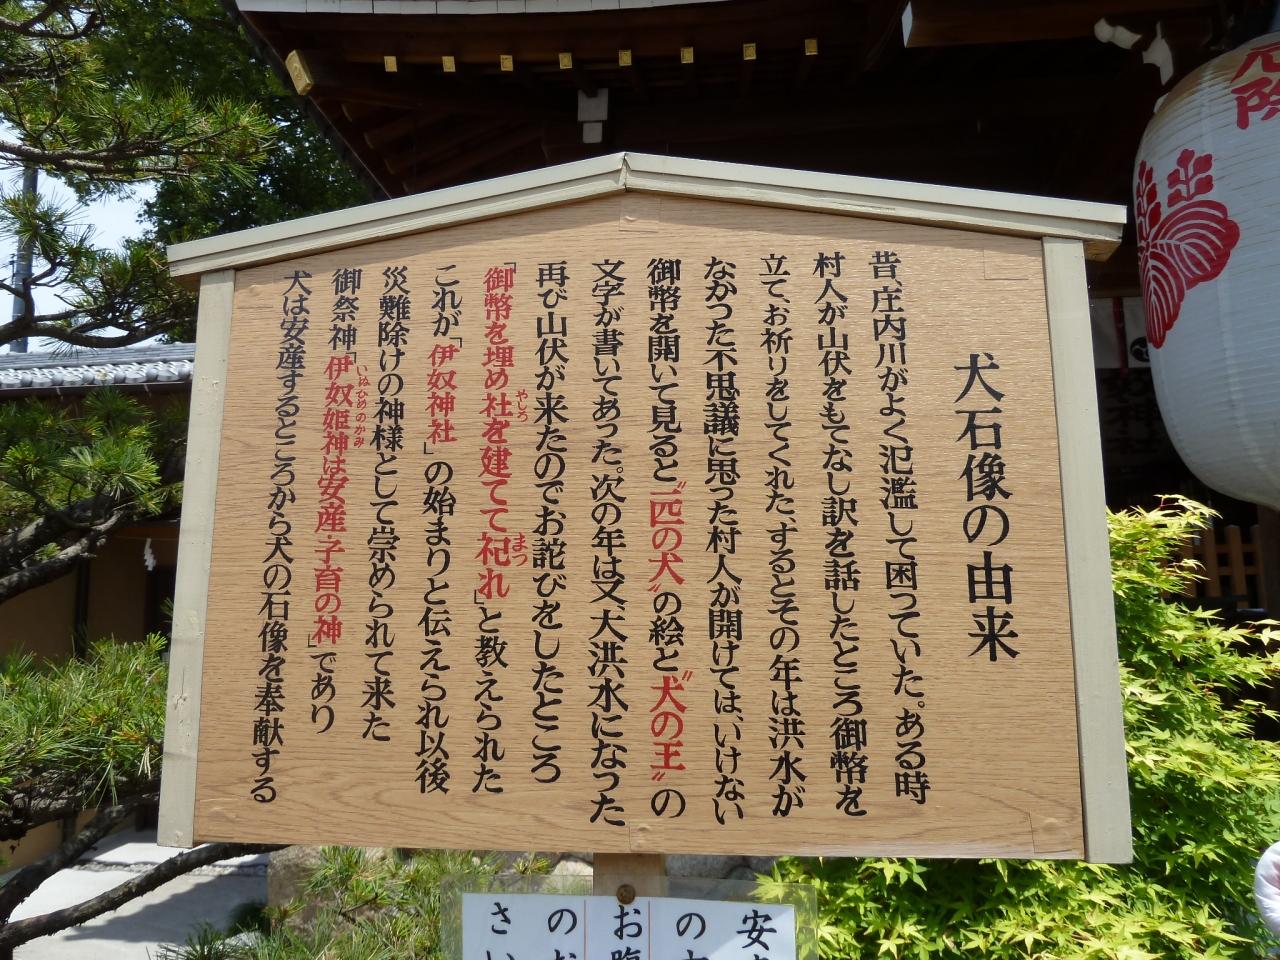 犬石像の由来
昔、庄内川がよく氾濫して困っていた。ある時
村人が山伏をもてなし訳を話したところ御幣を
立て、お祈りをしてくれた、するとその年は洪水が
なかった不思議に思った村人が開けては、いけない
御幣を開いて見ると〝一匹の犬〟の絵と〝犬の王〟の
文字が書いてあった。次の年は又、大洪水になった
再び山伏が来たのでお詫びをしたところ
「御幣を埋め社を建てて祀れ」と教えられた
やしろ
まつ
これが「伊奴神社」の始まりと伝えられ以後
災難除けの神様として崇められて来た
御祭神「伊奴姫神は安産・子育の神」であり
いぬひめのかみ
犬は安産するところから犬の石像を奉献する
厄除